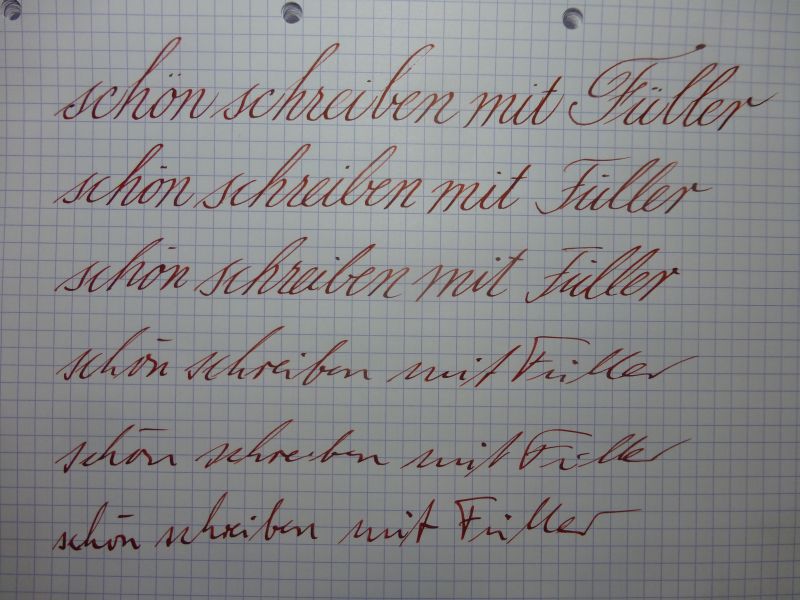 schön schreiben mit Füller
schön schreiben mit Füller
schön schreiben mit Füller
schön schreiben mit Füller
schön schreiben mit Füller
schön schreiben mit Füller